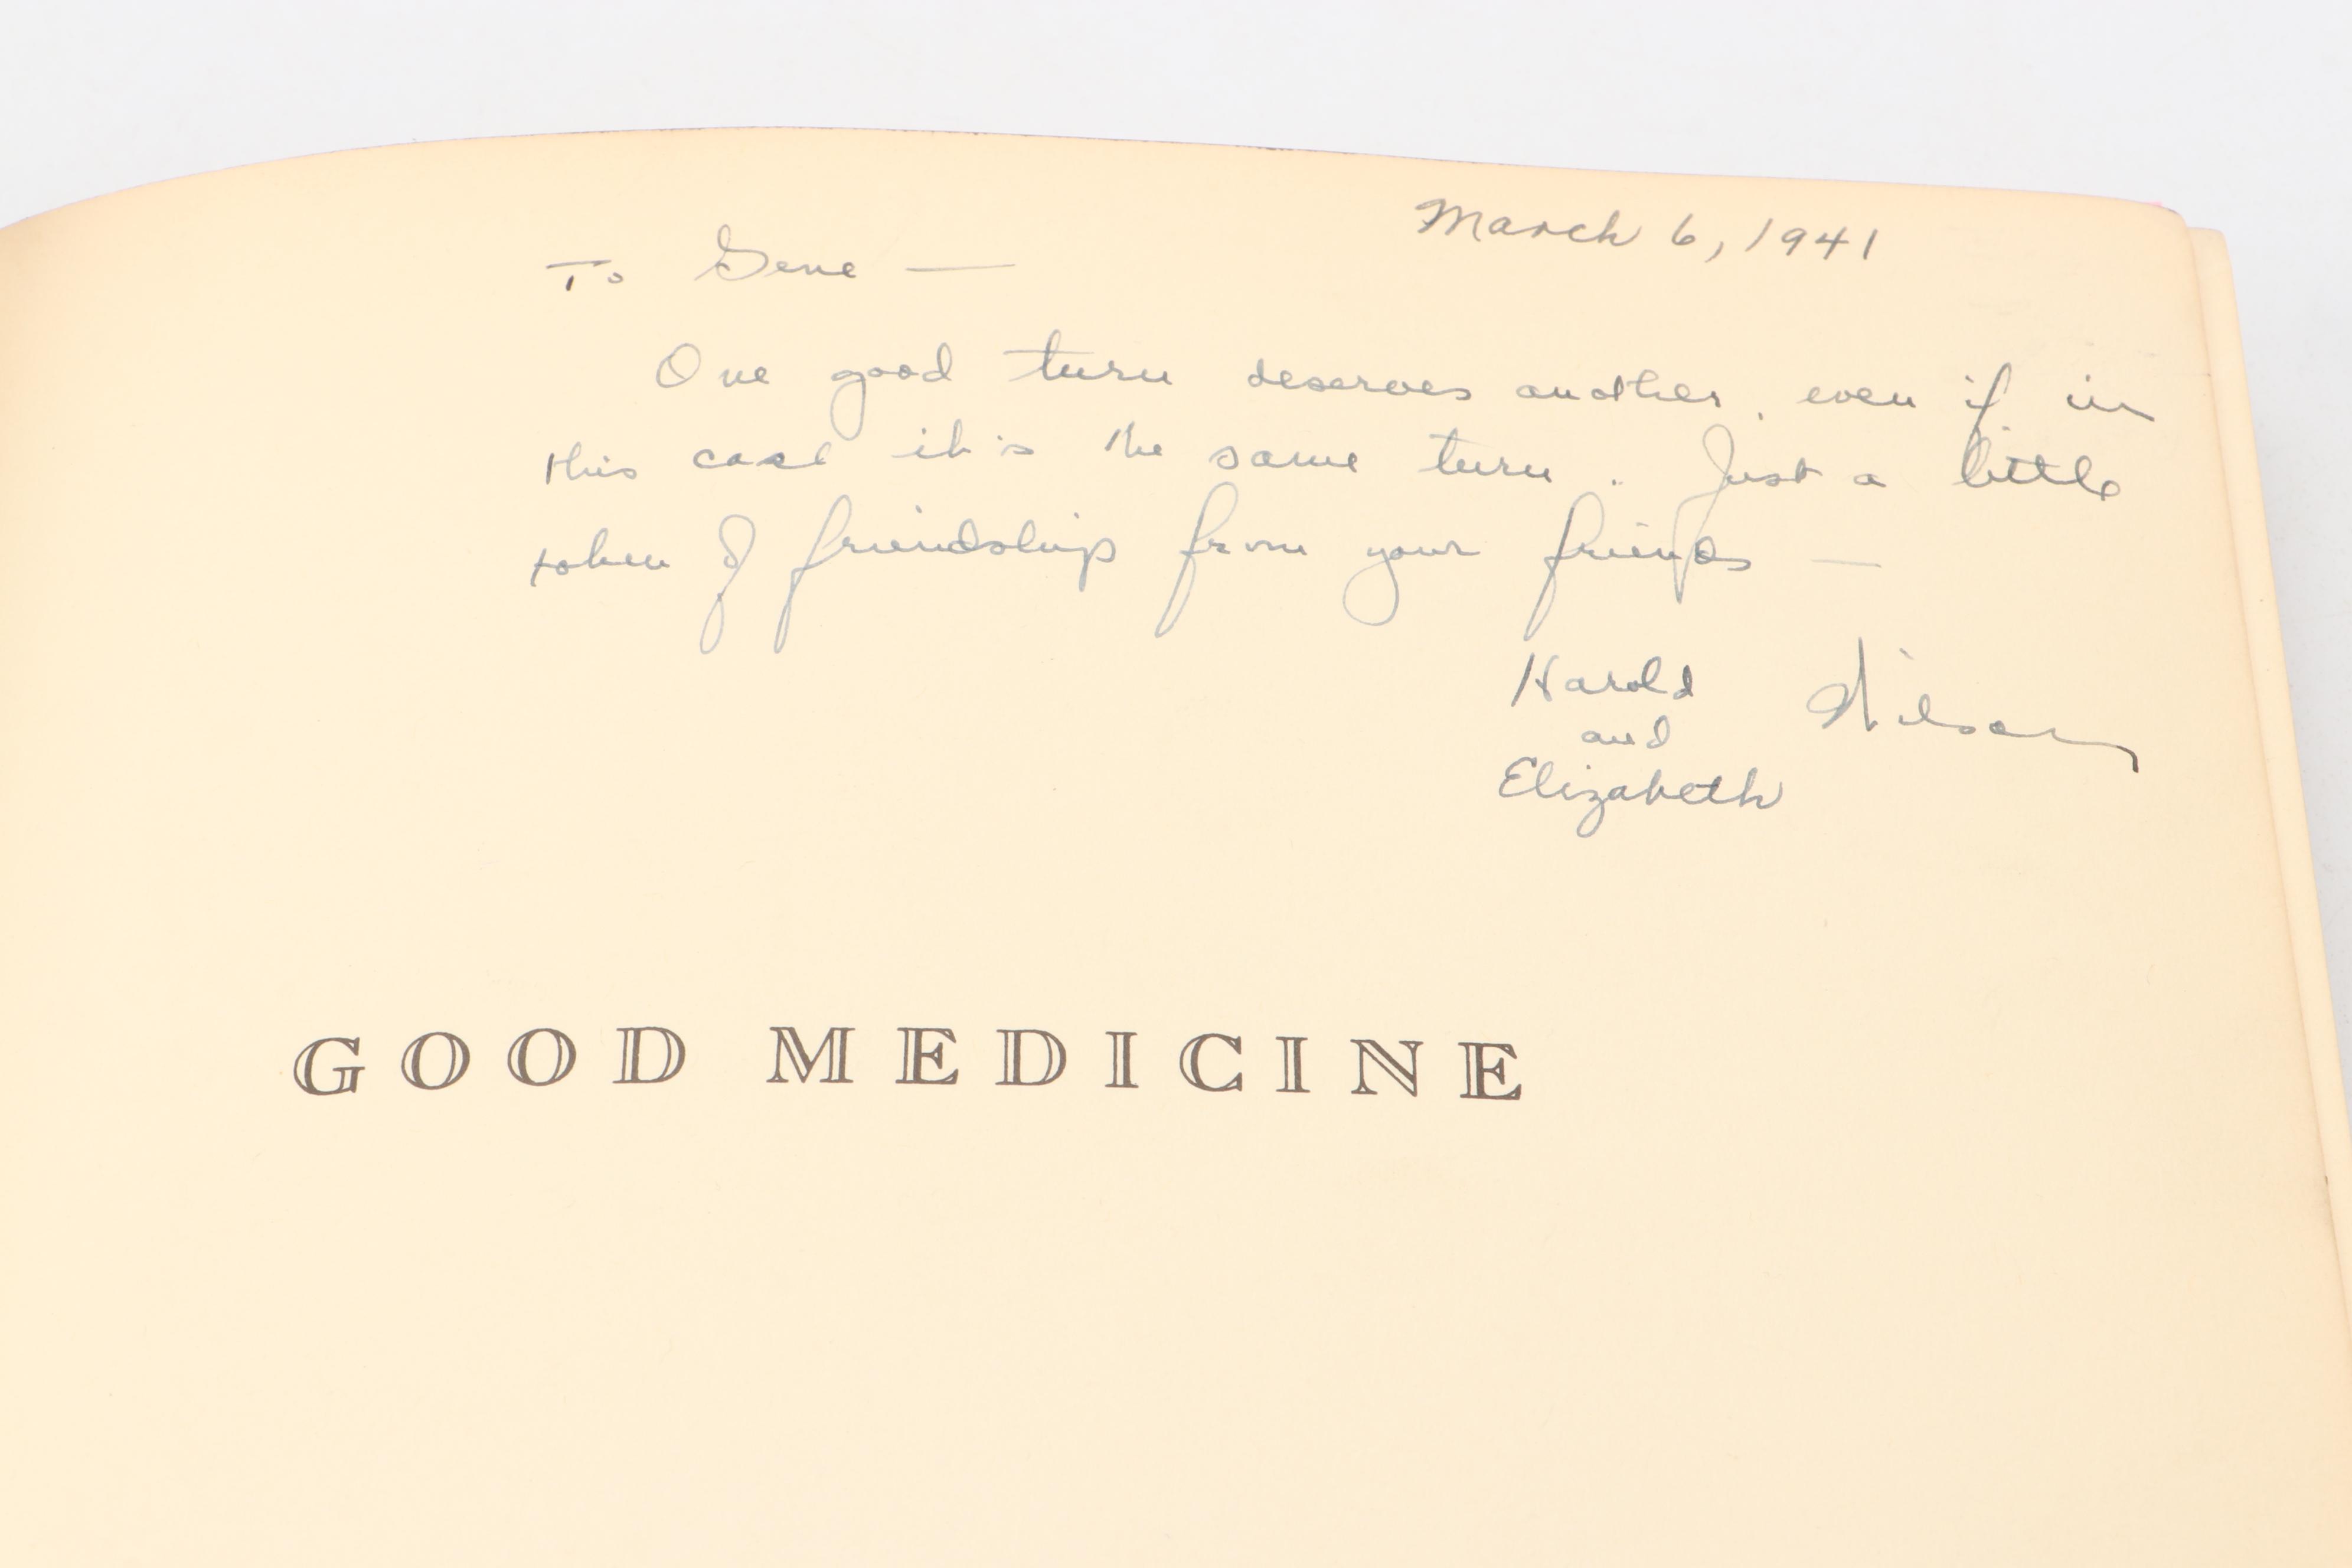 March 6, 1941
To Gene —
One good turn deserves another, even if in
this case it is the same turn. Just a little
token of friendship from your friends —
Harold Wilson
and
Elizabeth
GOOD MEDICINE